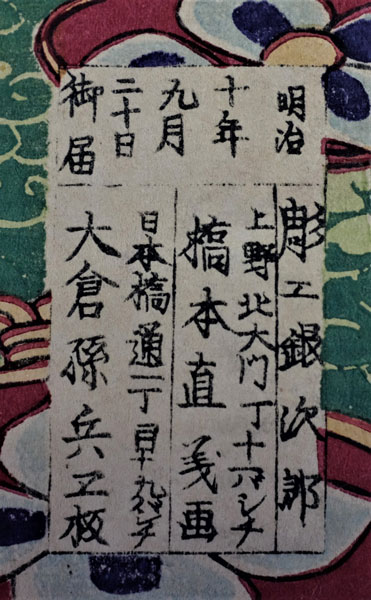 明治
十年
九月
二十日
御届
彫工銀次郎
上野北大門丁十一バンチ
橋本直義画
日本橋通一丁目十九バンチ
大倉孫兵ヱ板